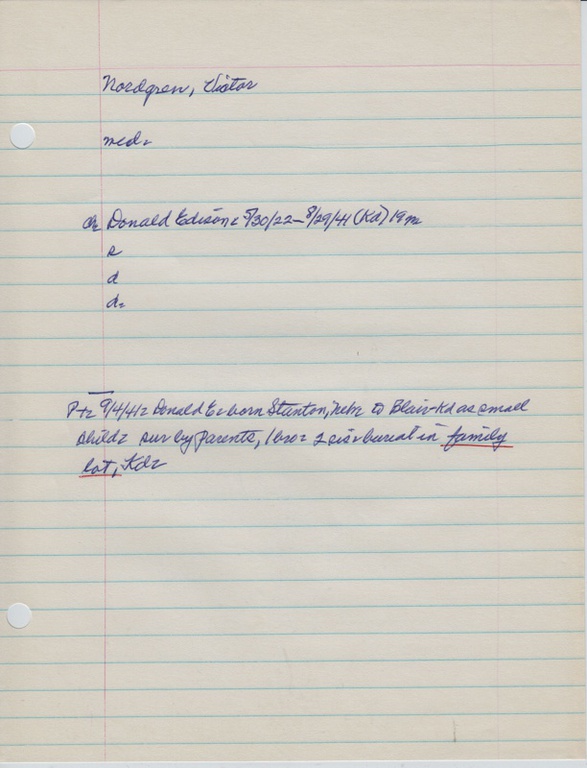 Nordgren, Victor
med.
ch Donald Edison: 5/30/22–8/29/41 (Kd) 19m
s
d
d.
P-t: 9/4/41: Donald E. born Stanton, Nebr to Blair-Kd as small
child: sur by parents, 1 bro: 2 sis: burial in family
lot, Kd: